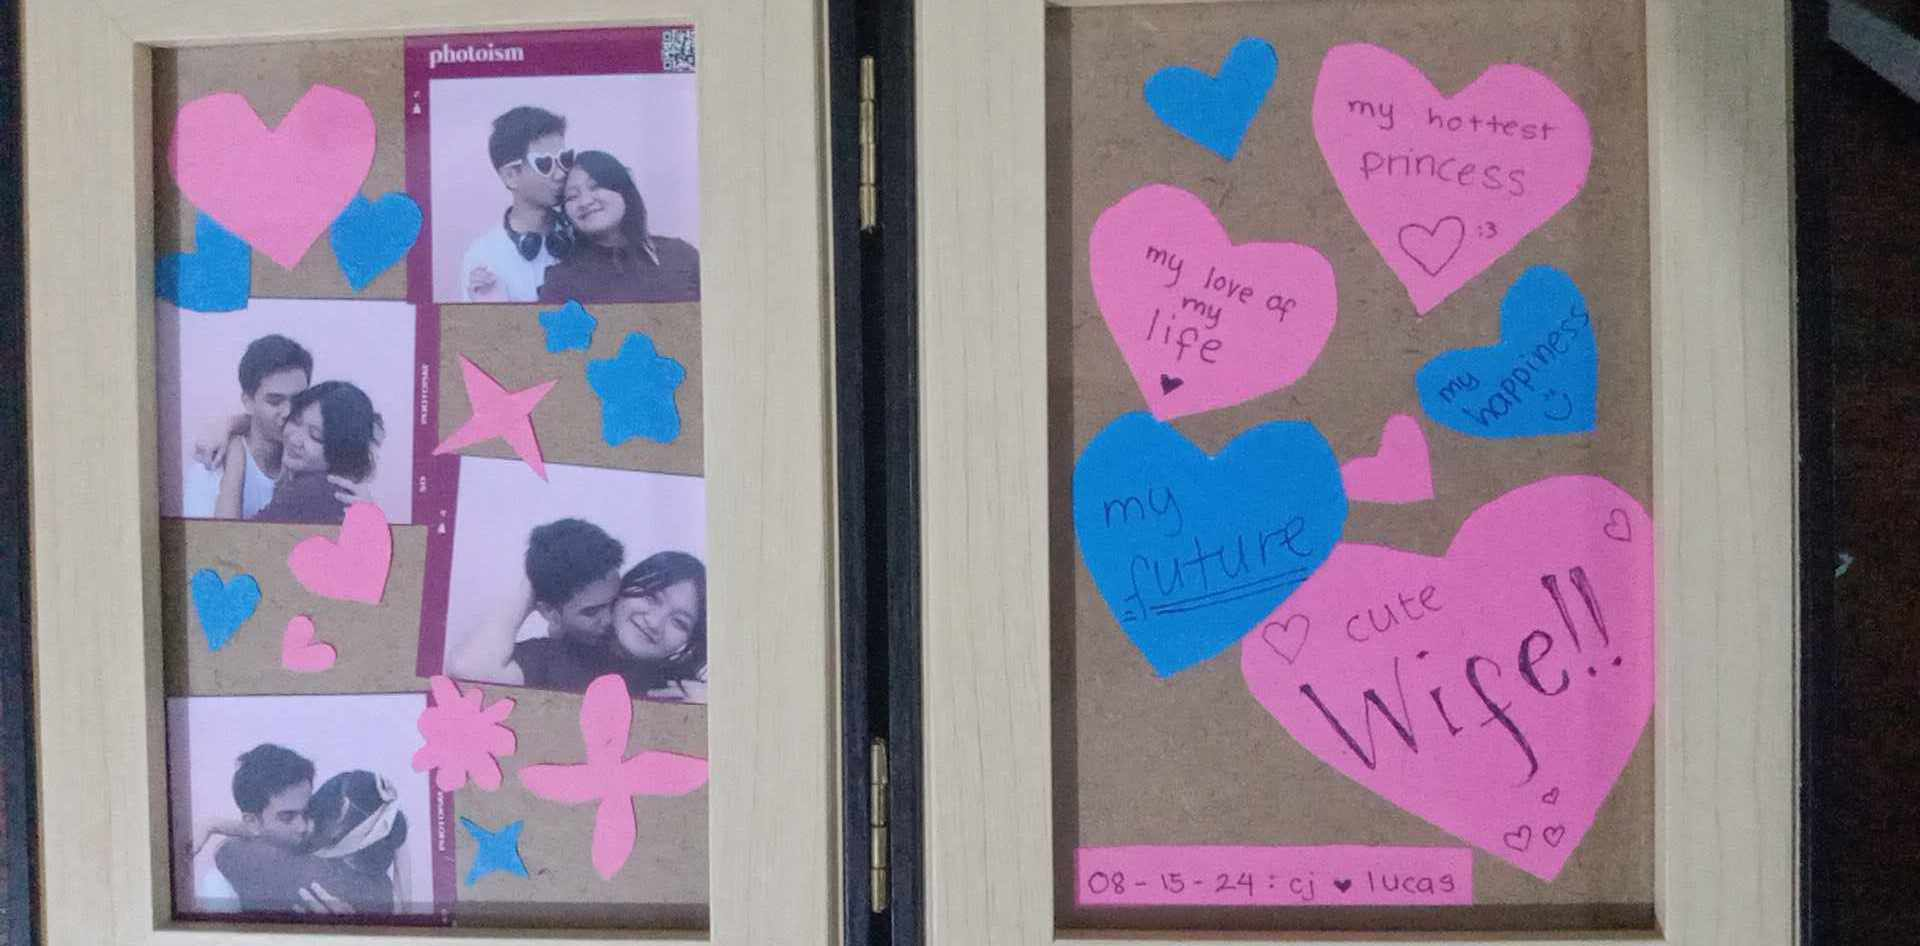 photoism
PHOTOISM
PHOTOISM
my hottest
princess
:3
my love of
my
life
my
happiness
my
future
cute
Wife!!
08-15-24 : cj ♥ lucas